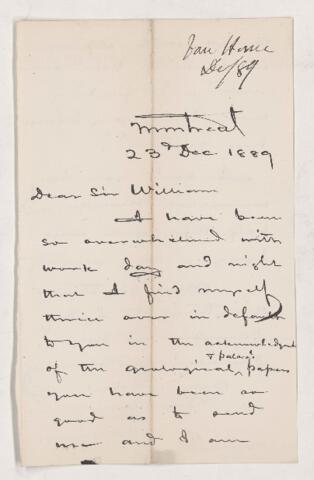 Van Horne
De/89
Montreal
23d Dec. 1889
Dear Sir William
I have been
so overwhelmed with
work day and night
that I find myself
thrice over in default
to you in the acknowledgmt
of the geological, papers
& palae.
you have been so
good as to send
me and I am